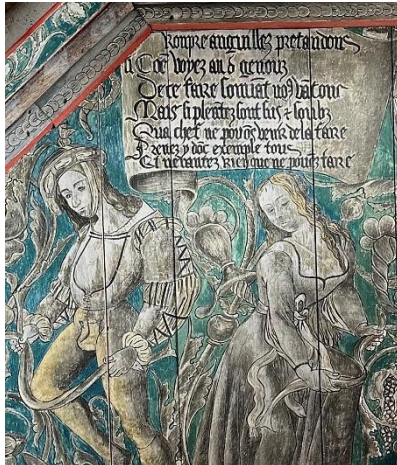 Ronpre anguillez pretandons
Coe voyez au genouz
De ce faire souvant no batons
Mais si pleatz sont sus & soubz
Qua chef ne povons venir de la faire
Prenez y doc exemple tous
Et ne tantez rien que ne puiez faire